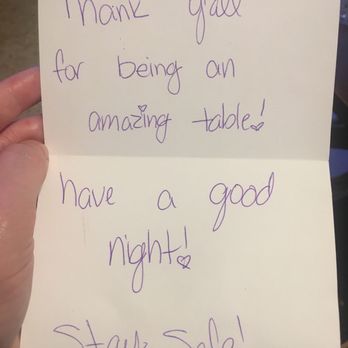 Thank y'all
for being an
amazing table!
have a good
night!
Stay Safe!